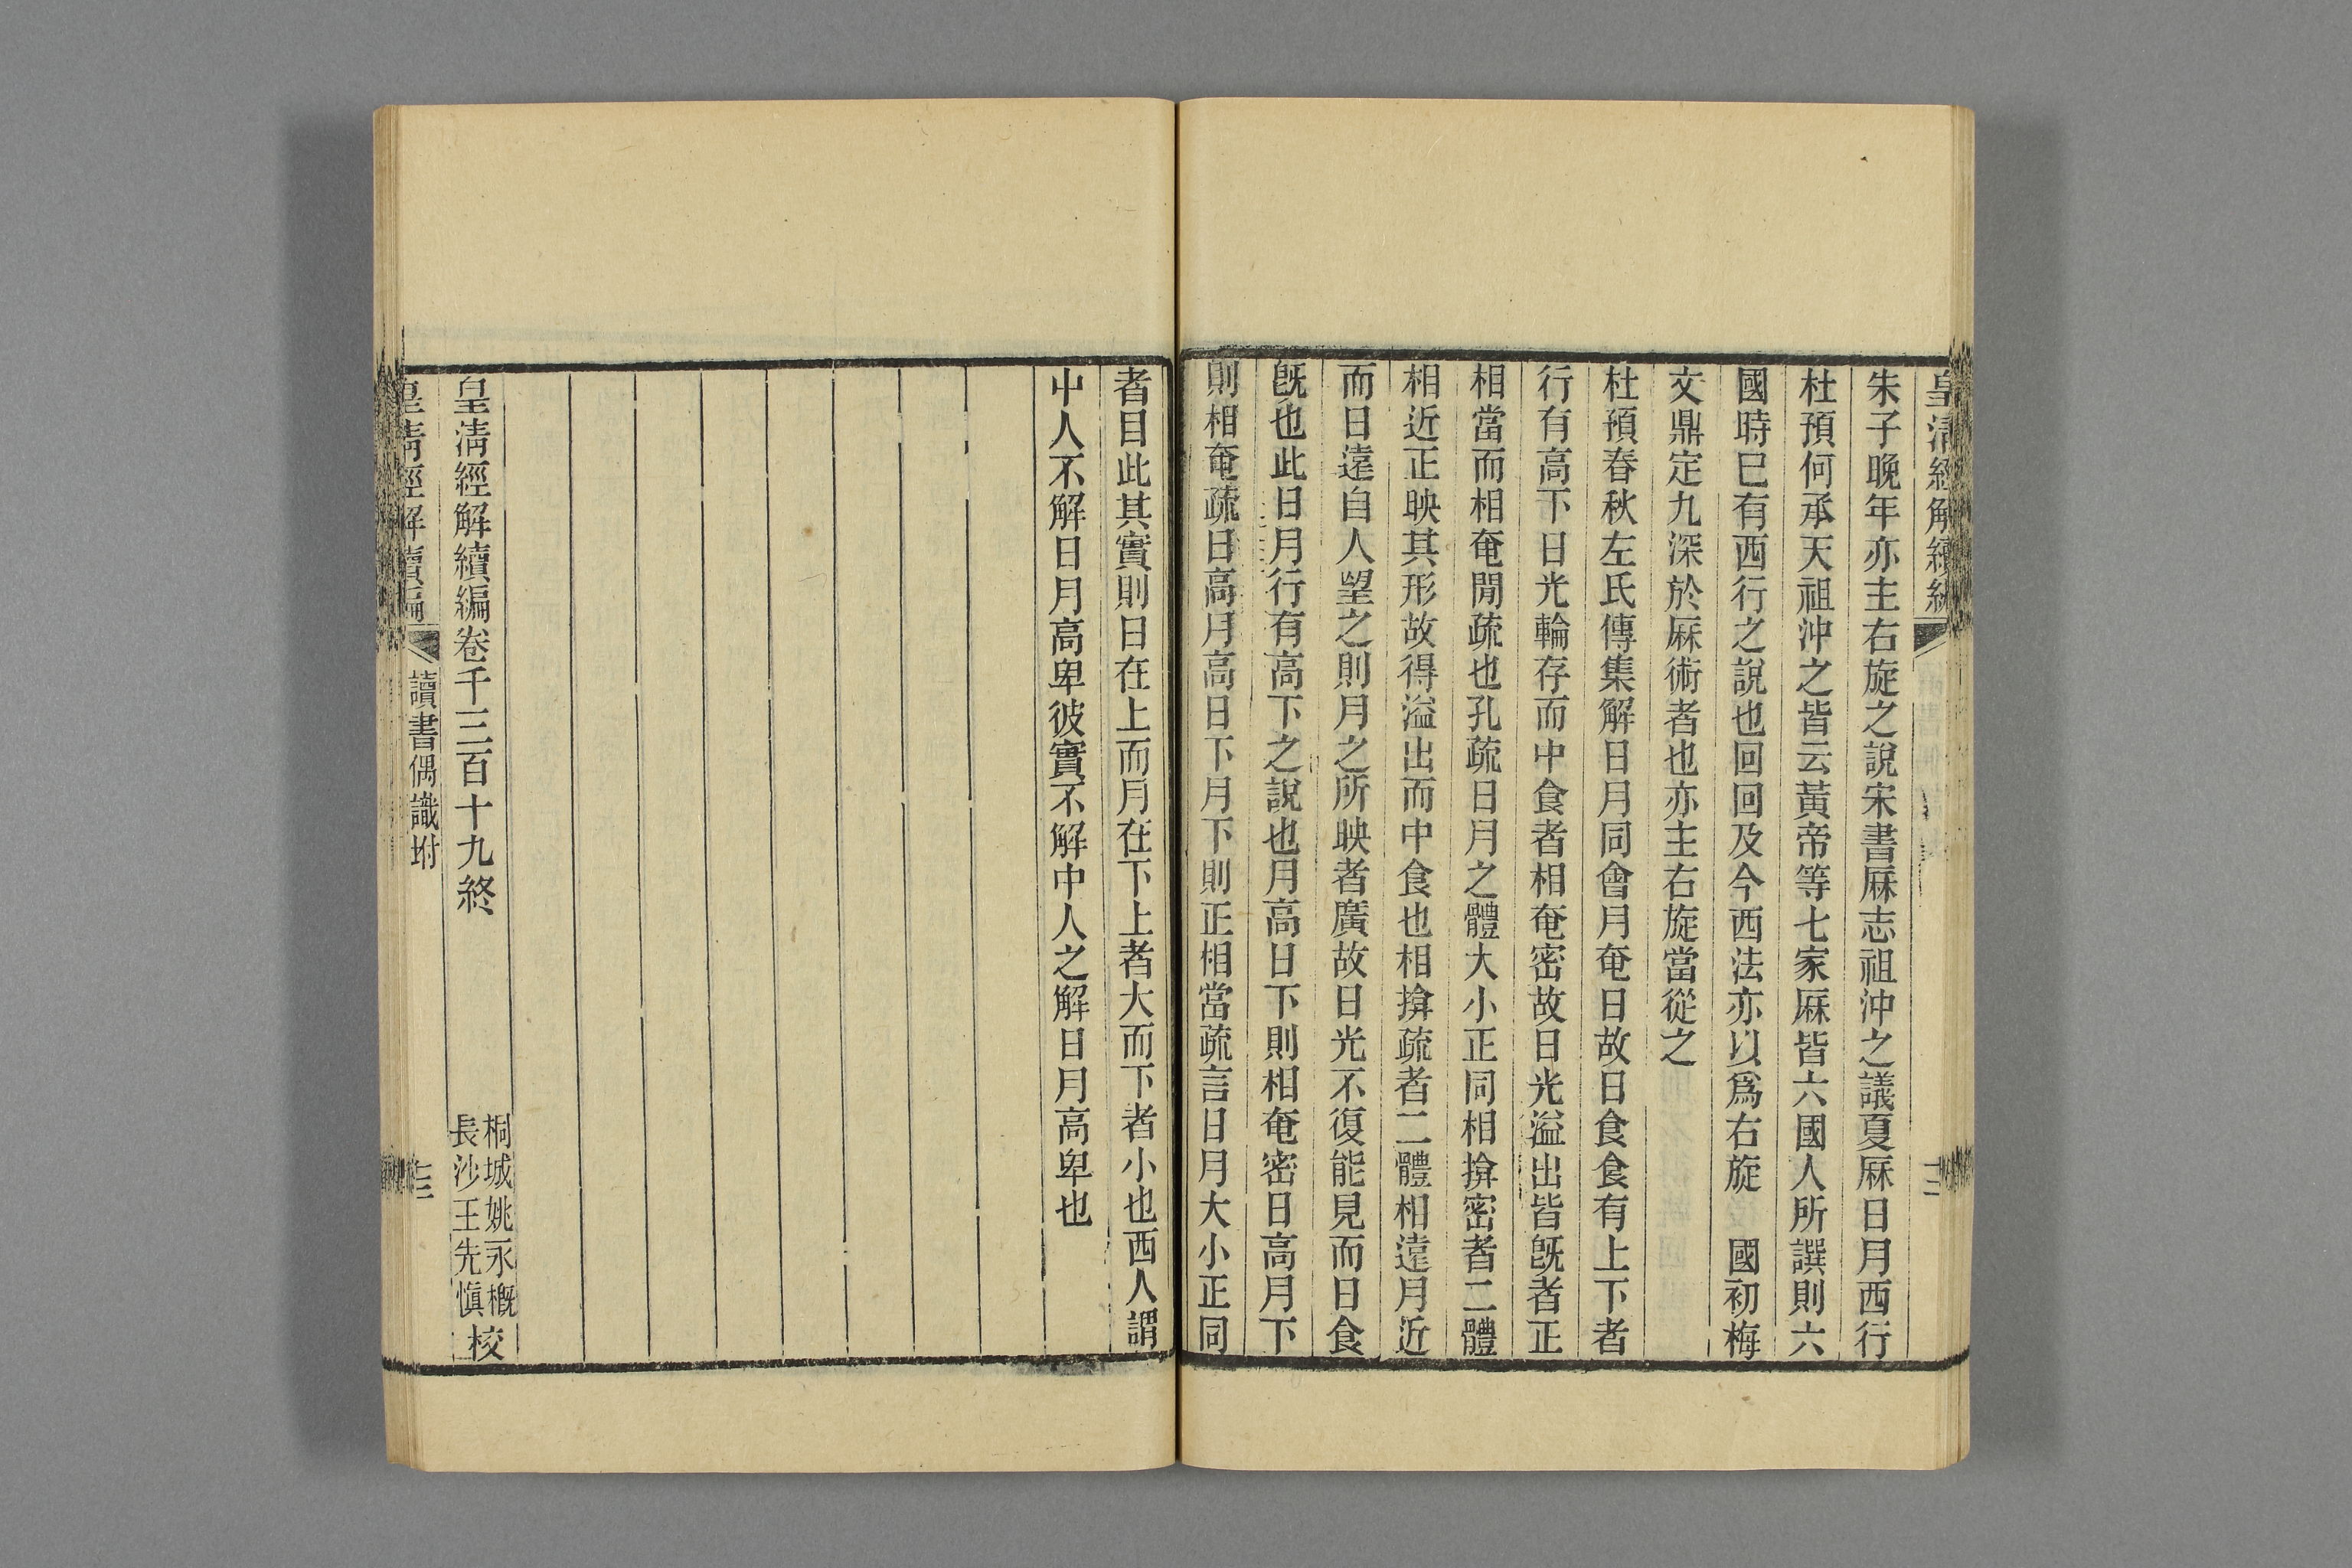 皇清經解續編
朱子晚年亦主右旋之說宋書厤志祖沖之議夏厤日月西行
杜預何承天祖沖之皆云黃帝等七家厤皆六國人所譔則六
國時巳有西行之說也回回及今西法亦以爲右旋 國初梅
文鼎定九深於厤術者也亦主右旋當從之
杜預春秋左氏傳集解日月同會月奄日故日食食有上下者
行有高下日光輪存而中食者相奄密故日光溢出皆旣者正
相當而相奄閒疏也孔疏日月之體大小正同相揜密者二體
相近正映其形故得溢出而中食也相揜疏者二體相遠月近
而日遠自人望之則月之所映者廣故日光不復能見而日食
旣也此日月行有高下之說也月高日下則相奄密日高月下
則相奄疏日高月高日下月下則正相當疏言日月大小正同
者目此其實則日在上而月在下上者大而下者小也西人謂
中人不解日月高卑彼實不解中人之解日月高卑也
皇清經解續編卷千三百十九終
桐城姚永概
長沙王先愼
校
皇清經解續編
讀書偶識坿
十三